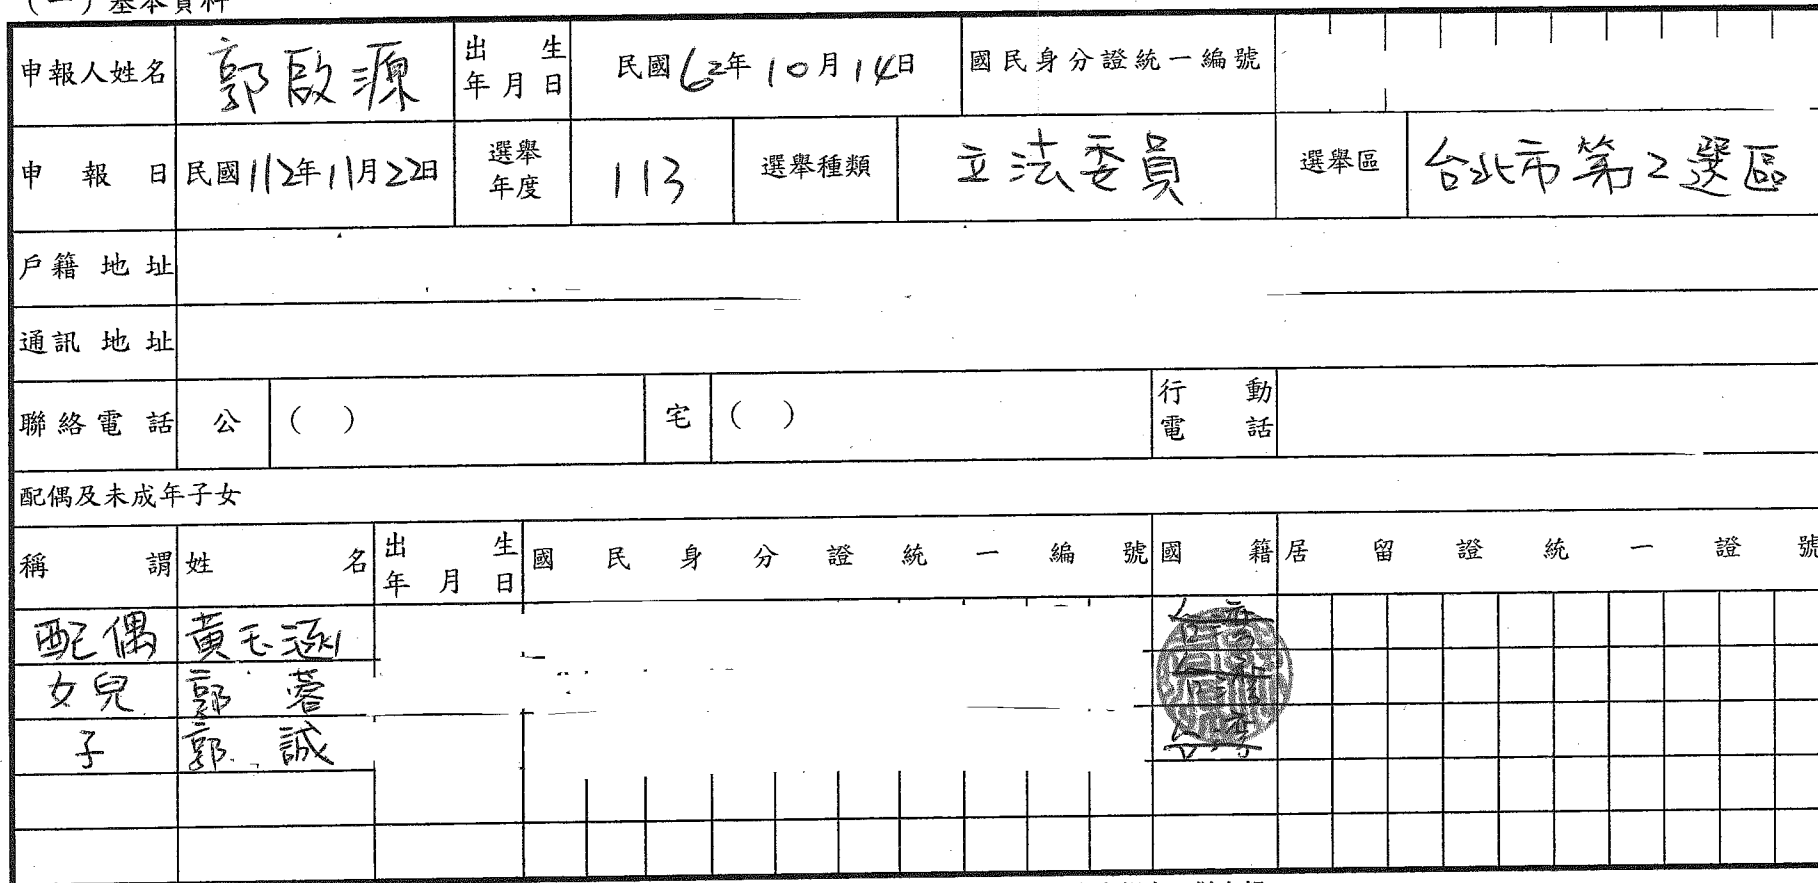 (一)基本資料
申報人姓名 郭啟源 出生年月日 民國62年10月14日 國民身分證統一編號
申報日 民國112年11月22日 選舉年度 113 選舉種類 立法委員 選舉區 台北市第2選區
戶籍地址
通訊地址
聯絡電話 公 ( ) 宅 ( ) 行動電話
配偶及未成年子女
稱謂 姓名 出生年月日 國民身分證統一編號 國籍 居留證統一證號
配偶 黃玉涵 台灣
女兒 郭蓉 台灣
子 郭誠 台灣